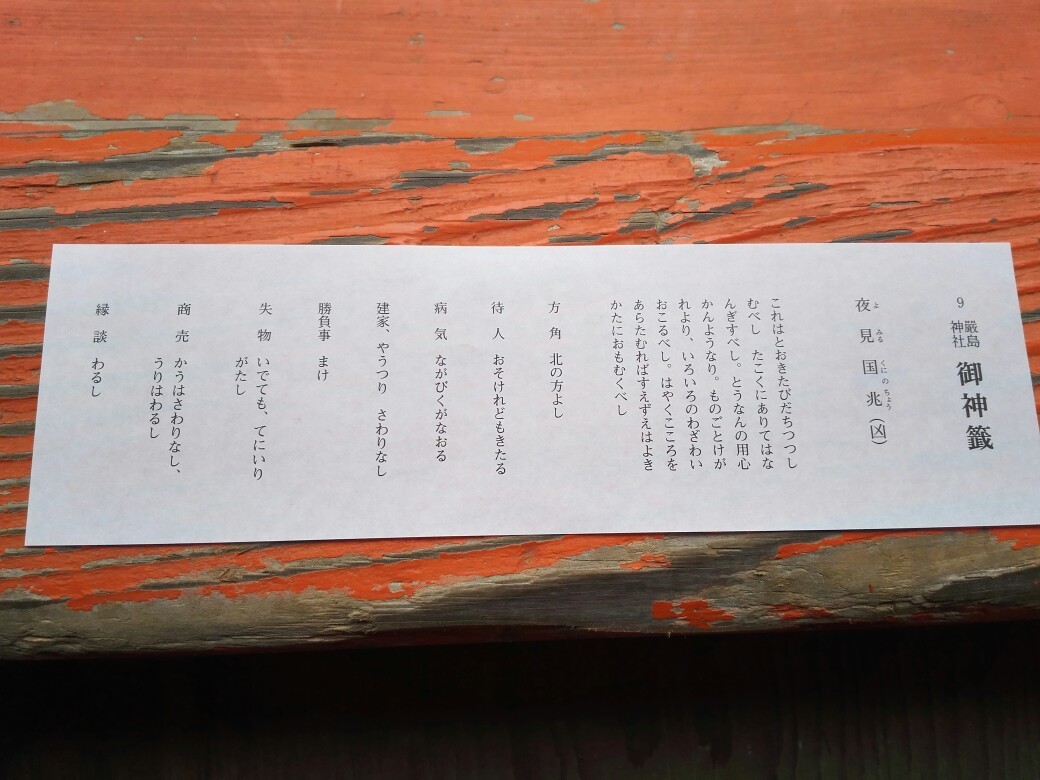 9 嚴島神社 御神籤
夜見国兆(凶)
よみるくにのちょう
これはとおきたびだちつつし
むべし たこくにありてはな
んぎすべし。とうなんの用心
かんようなり。ものごとけが
れより、いろいろのわざわい
おこるべし。はやくこころを
あらたむればすえずえはよき
かたにおもむくべし
方角 北の方よし
待人 おそけれどもきたる
病気 ながびくがなおる
建家、やうつり さわりなし
勝負事 まけ
失物 いでても、てにいり
がたし
商売 かうはさわりなし、
うりはわるし
縁談 わるし